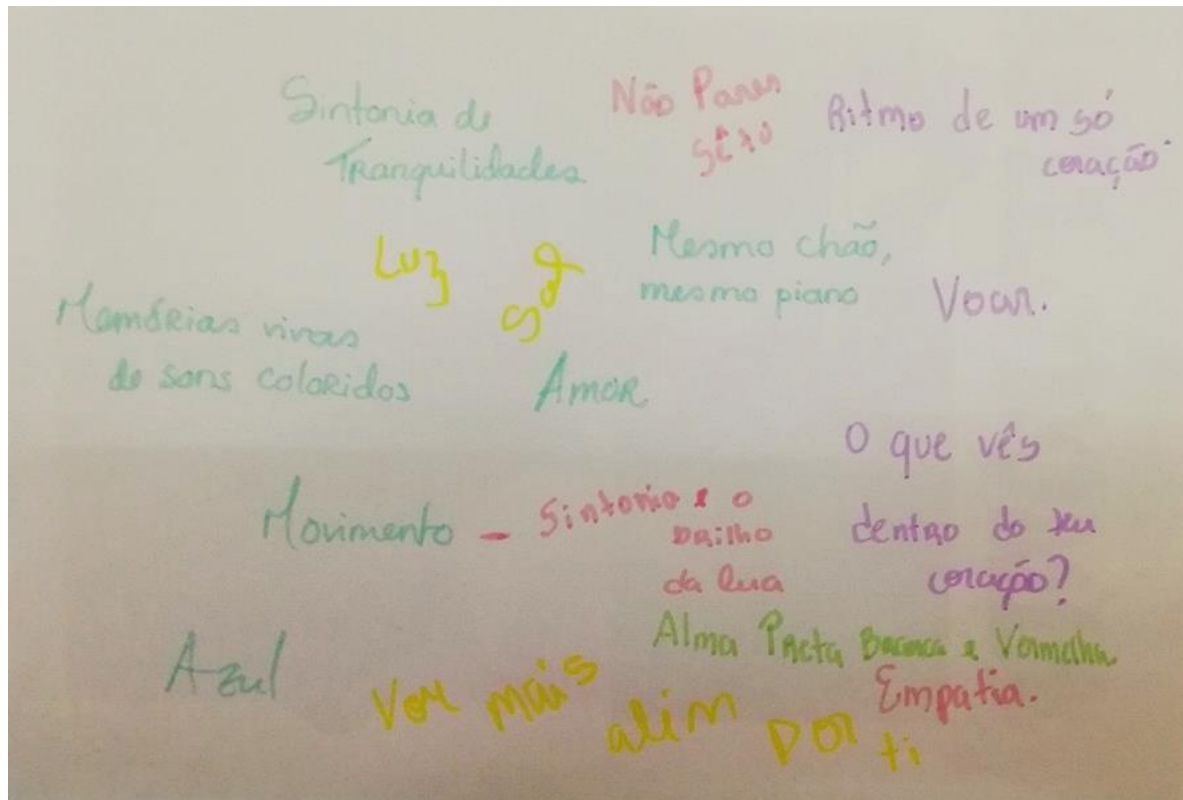 Sintonia de
Tranquilidades
Não Pares
Sê tu
Ritmo de um só
coração.
Luz
Sol
Mesmo chão,
mesmo piano
Voar.
Memórias vivas
de sons coloridos
Amor
O que vês
dentro do teu
coração?
Movimento - Sintonia e o
brilho
da lua
Alma Preta Branca e Vermelha
Empatia.
Azul
Ver mais
alim
por
ti